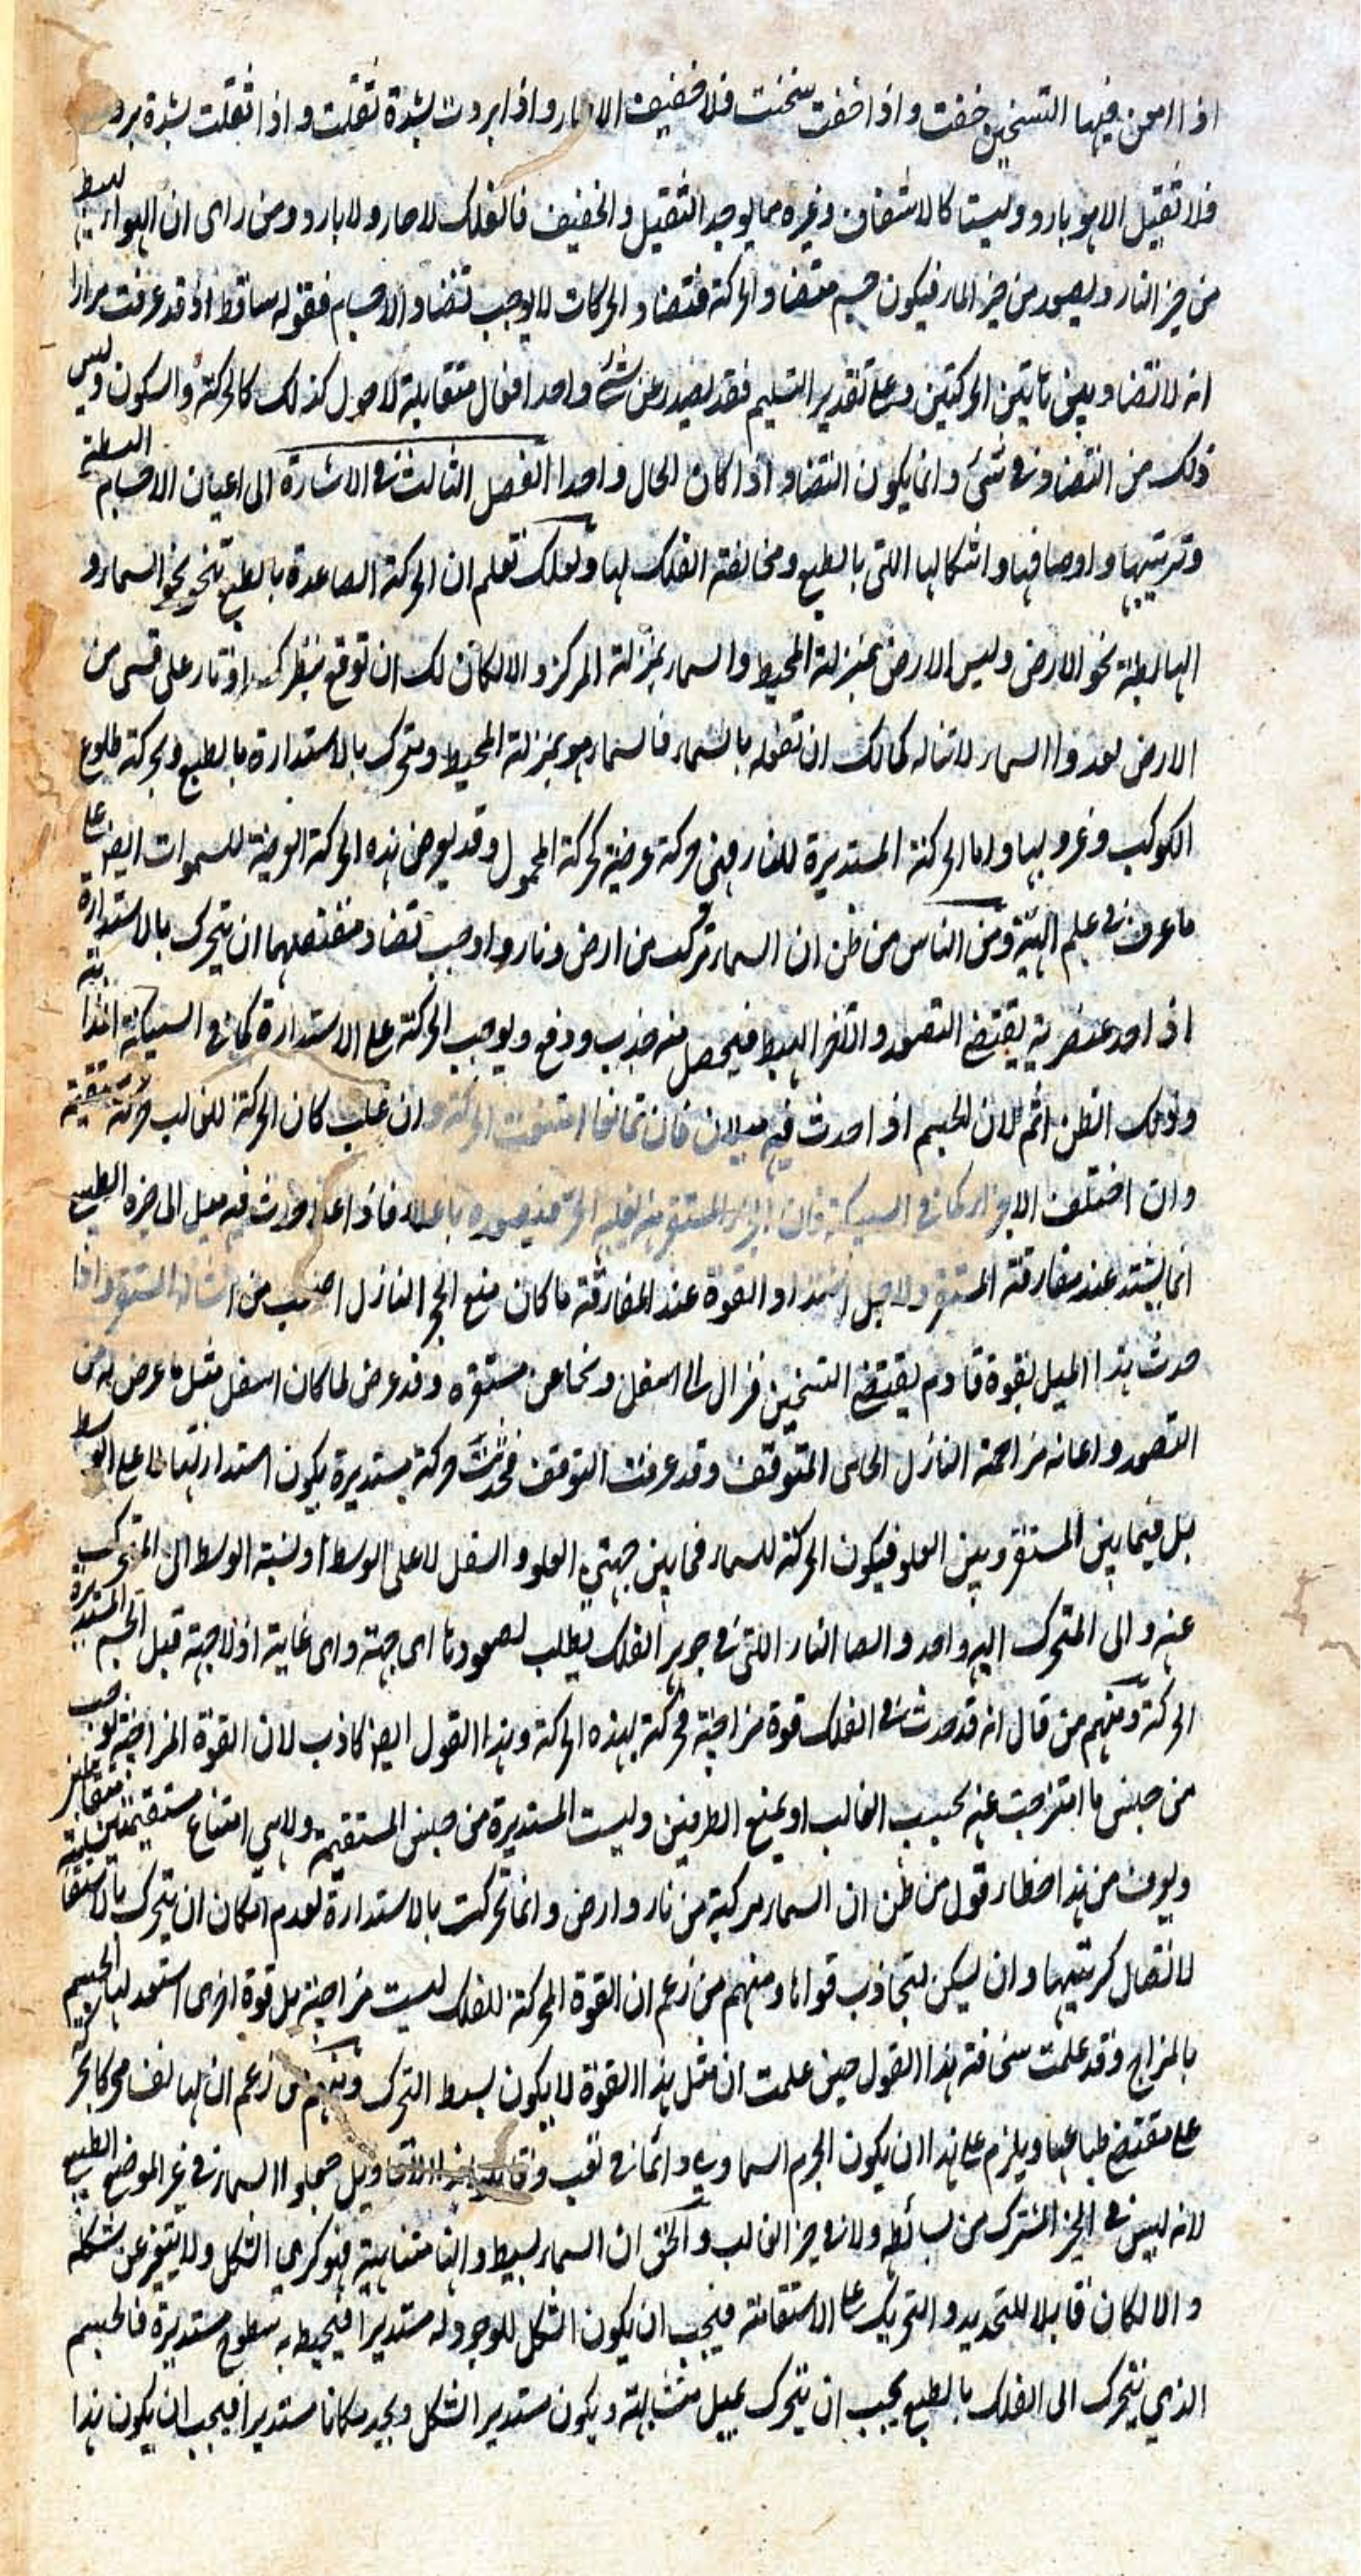 اذا امعن فيها التسخين خفت واذا خفت سخنت فلا خفيف الا حار واذا بردت بشدة ثقلت واذا ثقلت بشدة برد
فلا ثقيل الا هو بارد وليستا كالاشفاف وغيره مما يوجد الثقيل والخفيف فالفلك لا حار ولا بارد ومن راى ان الهواء يهبط
من حيز النار ويصعد من حيز الماء فيكون جسم متضاد الحركة فتضاد الحركات لا يوجب تضاد الاجسام فقوله ساقط اذ قد عرفت مرارا
انه لا تضاد بين تاتين الحركتين وعلى تقدير التسليم فقد يصدر عن شئ واحد افعال متقابلة لاحول كذلك كالحركة والسكون وليس
ذلك من التضاد في شئ وانما يكون التضاد اذا كان الحال واحدا الفصل الثالث في الاشارة الى اعيان الاجسام البسيطة
وترتيبها واوصافها واشكالها اللتى بالطبع ومخالفة الفلك لها ولعلك تعلم ان الحركة الصاعدة بالطبع تنحو نحو السماء و
الهابطة نحو الارض وليس الارض بمنزلة المحيط والسماء بمنزلة المركز والا لكان لك ان توقع بنظرك اوتار على قسى من
الارض لعدو السماء لا تناله كما لك ان تفعله بالسماء فالسماء هو بمنزلة المحيط ويتحرك بالاستدارة بالطبع وبحركته طلوع
الكوكب وغروبها واما الحركة المستديرة للنار فهى حركة عرضية كحركة المحمول وقد يعرض هذه الحركة العرضية للسموات ايضا على
ما عرف في علم الهيئة ومن الناس من ظن ان السماء تركب من ارض ونار واوجب تضاد مقتضيهما ان يتحرك بالاستدارة
اذ احد عنصريه يقتضى الصعود والاخر الهبوط فيحصل منه جذب ودفع ويوجب الحركة على الاستدارة كما في السبيكة الذائبة
وذلك الظن اثم لان الجسم اذا حدث فيه ميلان فان تمانعا امتنعت الحركة وان غلب كان الحركة للغالب حركة مستقيمة
وان اختلف الاجزاء كما في السبيكة فان الجزء المستقر منه يغليه الحر فيصعده باغلاء فاذا علا حدث فيه ميل الى حيزه الطبيعى
انما يشتد عند مفارقة المستقر ولاجل اشتداد القوة عند المفارقة ما كان منع الحجر النازل اصعب من اشالة المستقر واذا
حدث هذا الميل بقوة قاوم يقتضى التسخين فنزل الى اسفل ونحا عن مستقره وقد عرض لما كان اسفل مثل ما عرض له من
الصعود واعانه مزاحمة النازل الحامى المتوقف وقد عرفت التوقف فحدثت حركة مستديرة يكون استدارتها لا على الوسط
بل فيما بين المستقر وبين العلو فيكون الحركة للسماء فيما بين جهتي العلو والسفل لا على الوسط ونسبة الوسط الى المتحرك
عنه والى المتحرك اليه واحد وايضا النار اللتى في جوهر الفلك يطلب بصعودها اى جهة واى غاية اذ لا جهة قبل الجسم المستدير
الحركة ومنهم من قال انه قد حدث في الفلك قوة مزاجية محركة بهذه الحركة وهذا القول ايضا كاذب لان القوة المزاجية توجب
من جنس ما امتزجت عنه بحسب الغالب او يمنع الطرفين وليست المستديرة من جنس المستقيمة ولا هى امتناع مستقيمتين متقابلتين
ويعرف من هذا خطاء قول من ظن ان السماء مركبة من نار وارض وانما تحركت بالاستدارة لعدم امكان ان يتحرك بالاستقامة
لاتصال كريتيها وان يسكن لتجاذب قواها ومنهم من زعم ان القوة المحركة للفلك ليست مزاجية بل قوة اخرى استعد لها الجسم
بالمزاج وقد علمت سخافة هذا القول حين علمت ان مثل هذا القوة لا يكون بسيط التحرك ومنهم من زعم ان لها نفس محركا بحركة
على مقتضى طباعها ويلزم على هذا ان يكون الجرم السماوي دائما في تعب وقايلو هذه الاقاويل جعلوا السماء في غير الموضع الطبيعى
لانه ليس في الحيز المشترك من بسائطه ولا في حيز الغالب والحق ان السماء بسيط وانها متناهية فهو كري الشكل ولا يتغير عن شكله
والا لكان قابلا للتحديد والتحريك على الاستقامة فيجب ان يكون الشكل للوجود له مستديرا فيحيط به سطوح مستديرة فالجسم
الذي يتحرك الى الفلك بالطبع يجب ان يتحرك بميل متشابهة ويكون مستدير الشكل ويجد مكانا مستديرا فيجب ان يكون هذا